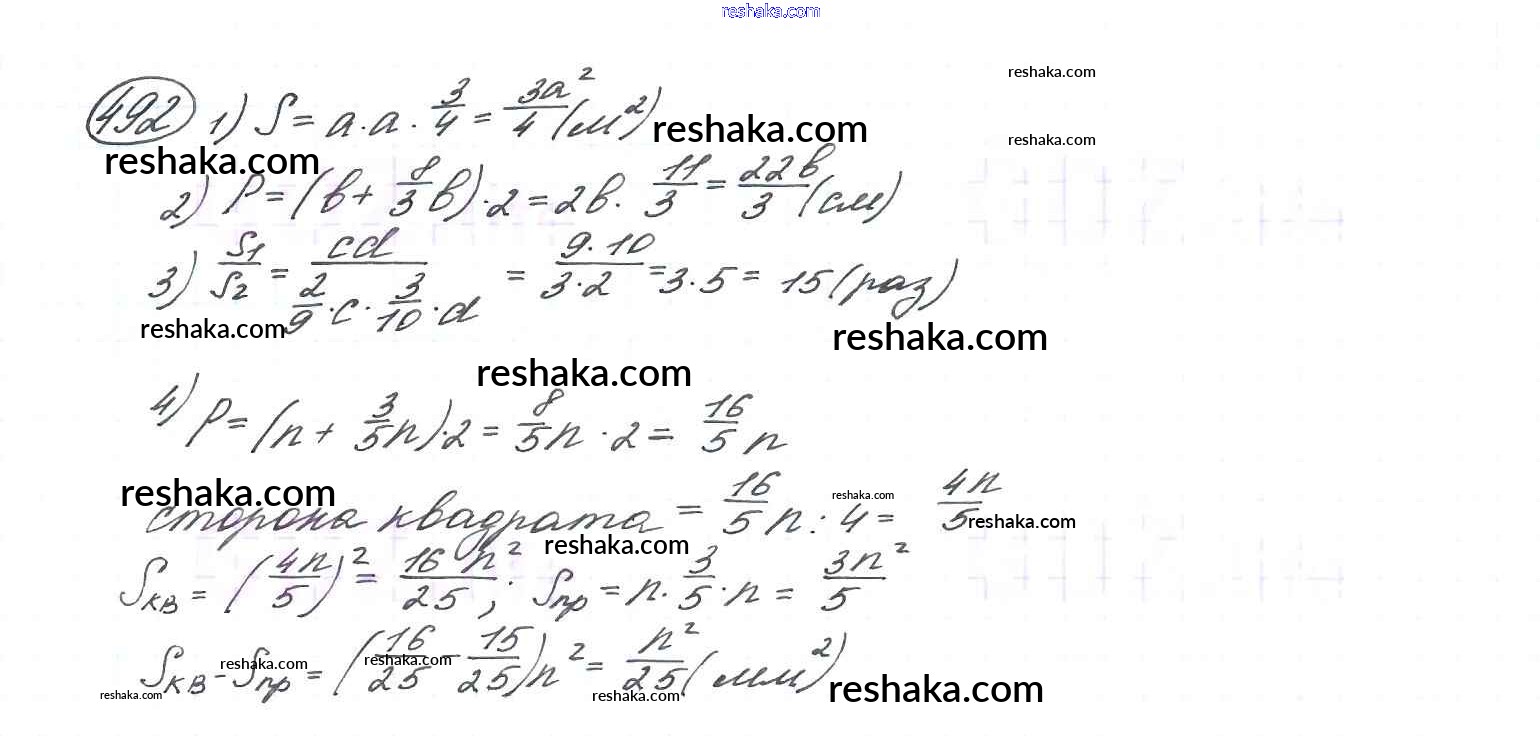 reshaka.com
reshaka.com
492 1) S = a·a·3/4 = 3a²/4 (м²) reshaka.com
reshaka.com
reshaka.com
2) P = (b + 8/3 b)·2 = 2b·11/3 = 22b/3 (см)
3) S₁/S₂ = cd / (2/9·c·3/10·d) = 9·10/3·2 = 3·5 = 15 (раз)
reshaka.com reshaka.com
reshaka.com
4) P = (n + 3/5 n)·2 = 8/5 n·2 = 16/5 n
reshaka.com reshaka.com
сторона квадрата = 16/5 n : 4 = 4n/5 reshaka.com
reshaka.com
Sкв = (4n/5)² = 16n²/25; Sпр = n·3/5·n = 3n²/5
Sкв - Sпр = (16/25 - 15/25)n² = n²/25 (мм²)
reshaka.com reshaka.com
reshaka.com reshaka.com reshaka.com